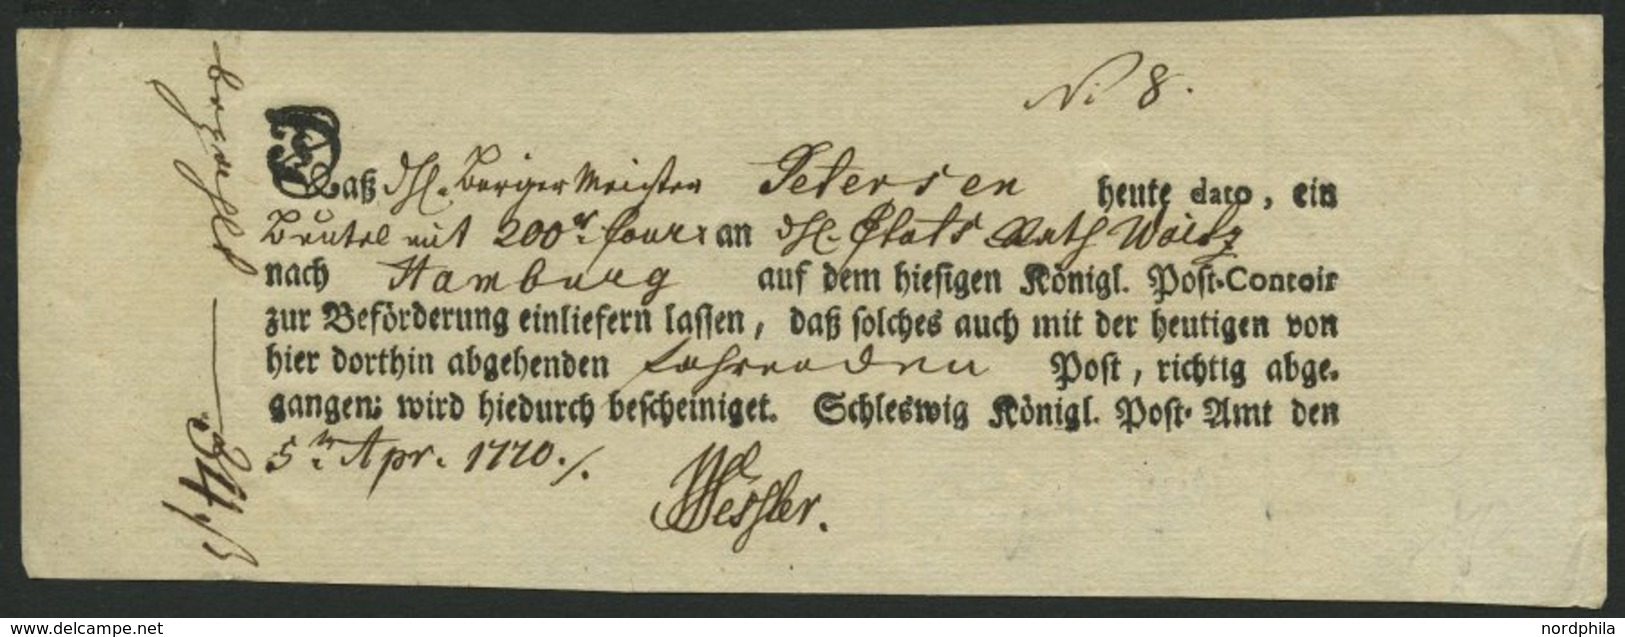 No 8.
Daß Hl. Bürger Meister Petersen heute dato, ein
Beutel mit 200 an Hl. Etats Rath
nach Hamburg auf dem hiesigen Königl. Post-Contoir
zur Beförderung einliefern lassen, daß solches auch mit der heutigen von
hier dorthin abgehenden fahrenden Post, richtig abge-
gangen; wird hiedurch bescheiniget. Schleswig Königl. Post-Amt den
5 Apr. 1770.
Wessler.
bezahlt
www.delcampe.net
nordphila